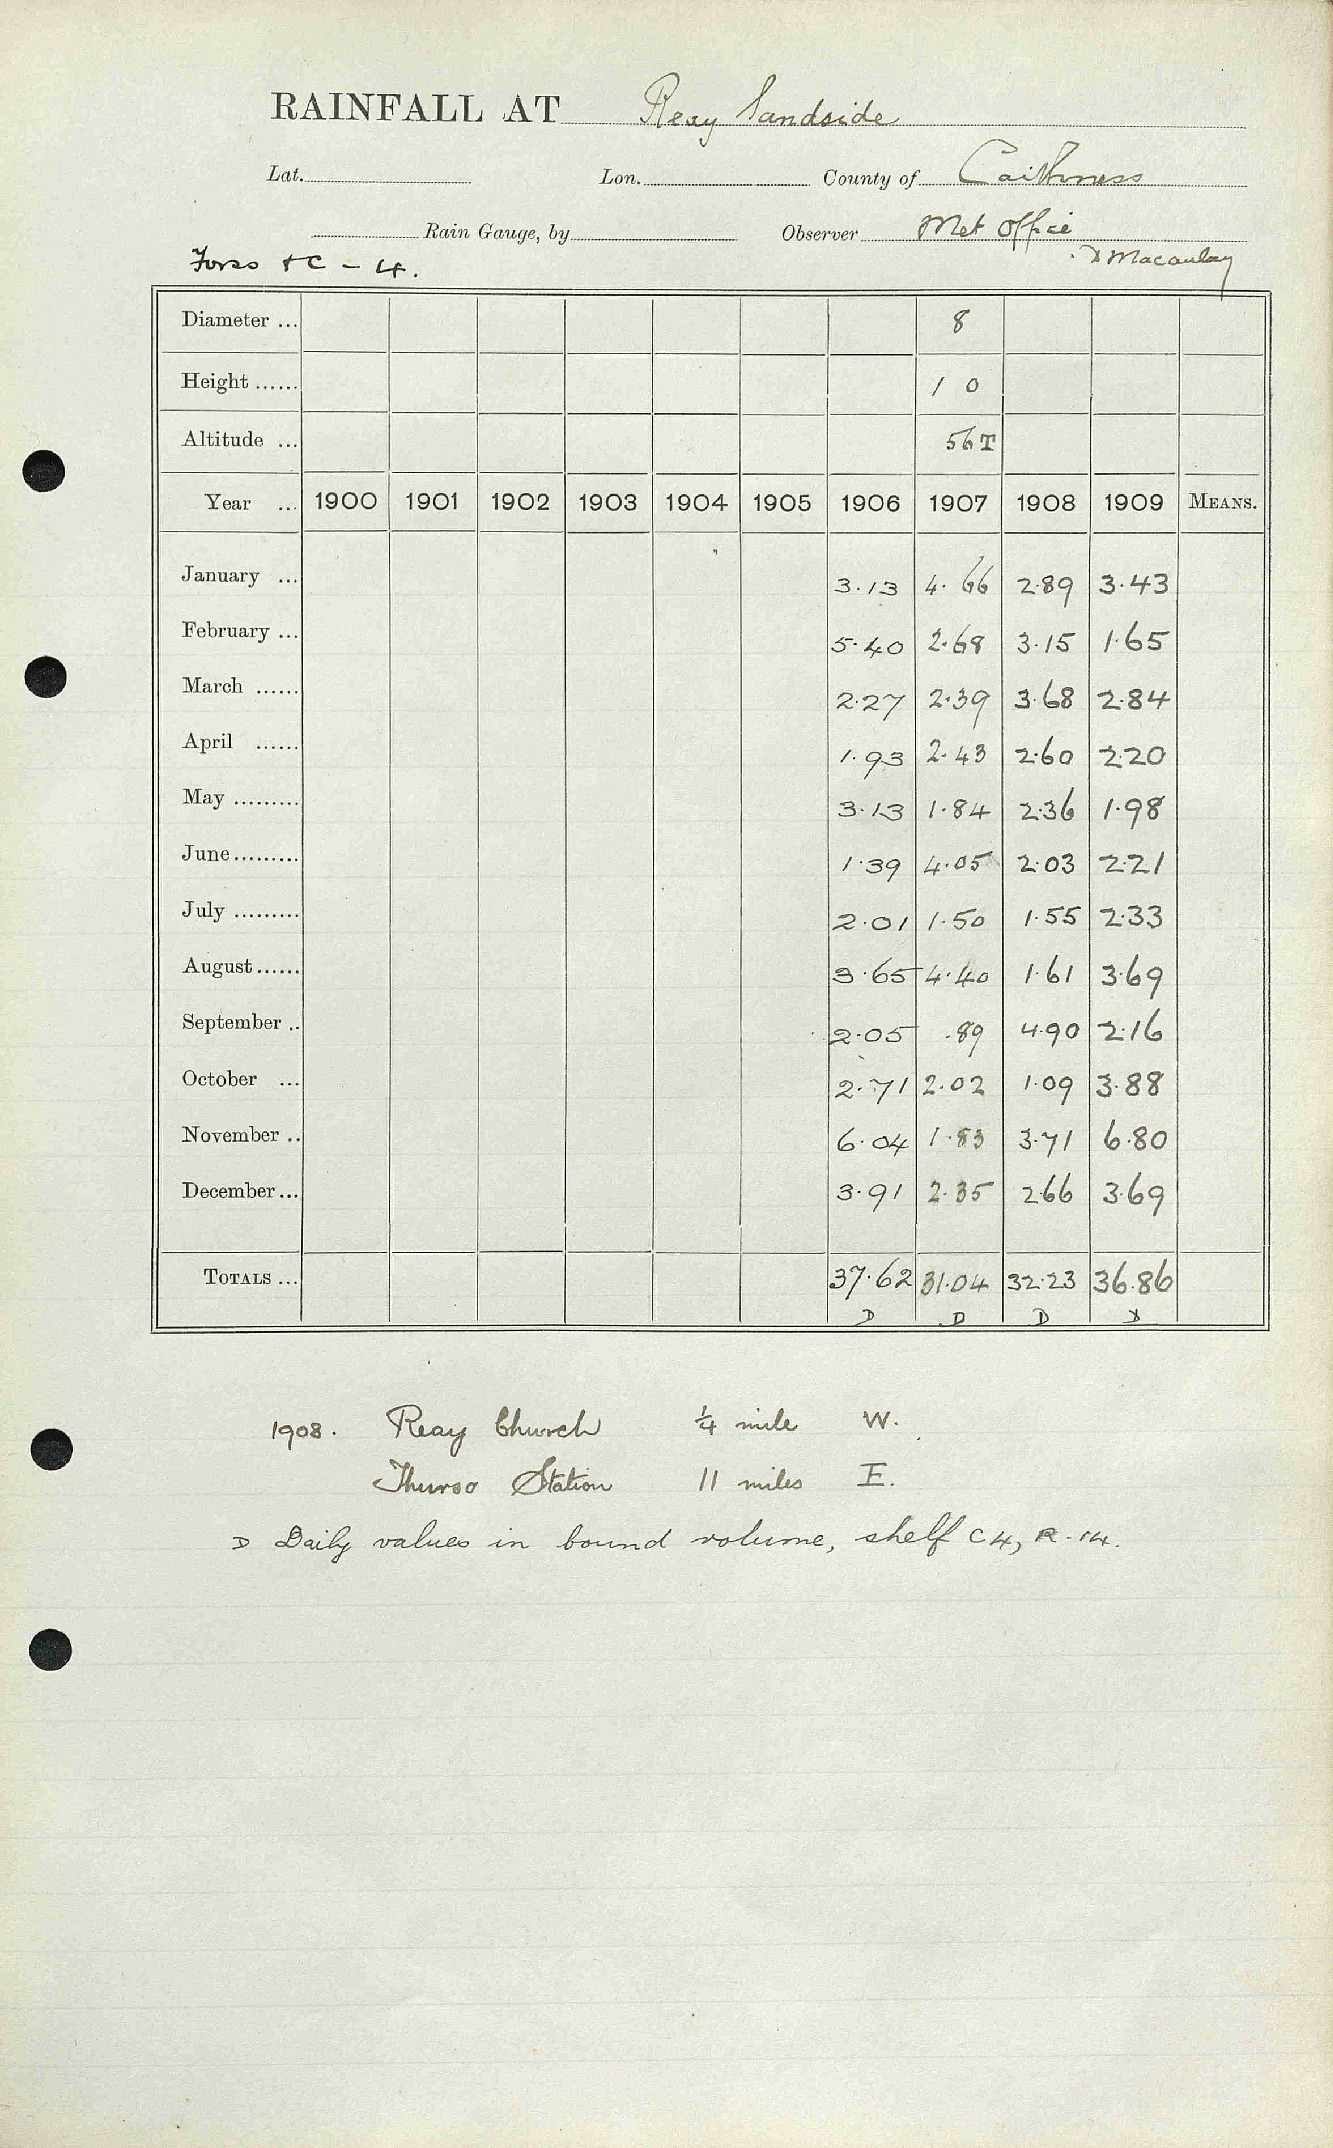 RAINFALL AT Reay Sandside
Lat. Lon. County of Caithness
Rain Gauge, by Observer Met Office
Forss & C - 4. D Macaulay
Diameter ... 8
Height ...... 1 0
Altitude ... 56T
Year ... 1900 1901 1902 1903 1904 1905 1906 1907 1908 1909 MEANS.
January ... 3.13 4.66 2.89 3.43
February ... 5.40 2.68 3.15 1.65
March ...... 2.27 2.39 3.68 2.84
April ...... 1.93 2.43 2.60 2.20
May ......... 3.13 1.84 2.36 1.98
June......... 1.39 4.05 2.03 2.21
July ......... 2.01 1.50 1.55 2.33
August...... 3.65 4.40 1.61 3.69
September .. 2.05 .89 4.90 2.16
October ... 2.71 2.02 1.09 3.88
November .. 6.04 1.83 3.71 6.80
December... 3.91 2.35 2.66 3.69
TOTALS ... 37.62 31.04 32.23 36.86
D D D D
1908. Reay Church ¼ mile W.
Thurso Station 11 miles E.
D Daily values in bound volume, shelf C4, R.14.